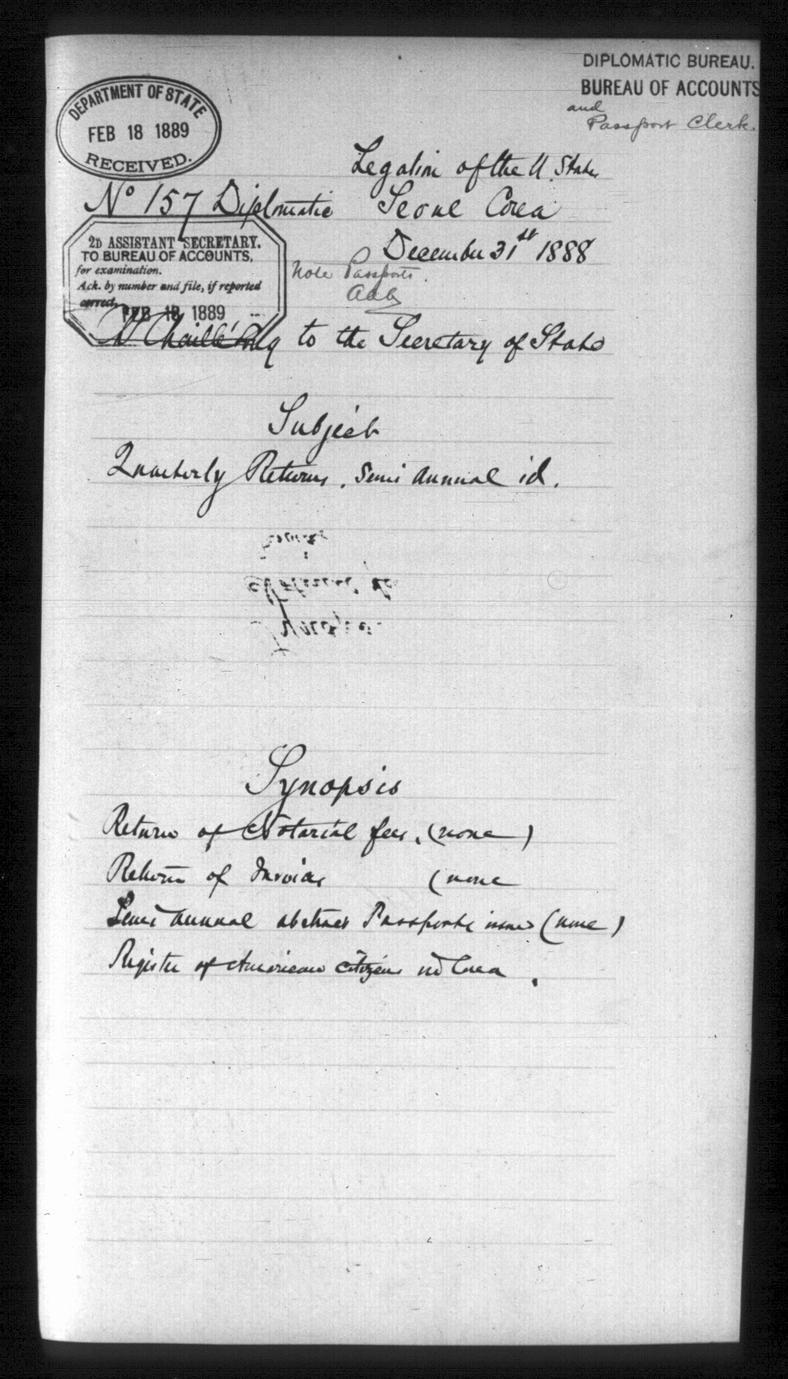 DIPLOMATIC BUREAU.
BUREAU OF ACCOUNTS
and
Passport Clerk.
DEPARTMENT OF STATE
FEB 18 1889
RECEIVED.
Legation of the U. States
No 157 Diplomatic Seoul Corea
December 31st 1888
2D ASSISTANT SECRETARY.
TO BUREAU OF ACCOUNTS,
for examination.
Ack. by number and file, if reported
correct.
FEB 18 1889
Note Passports.
Chaillé Long to the Secretary of State
Subject
Quarterly Returns, Semi Annual id.
Synopsis
Return of Notarial fees, (none)
Return of Invoices (none
Semi Annual abstract Passports (none)
Register of American Citizens in Corea.